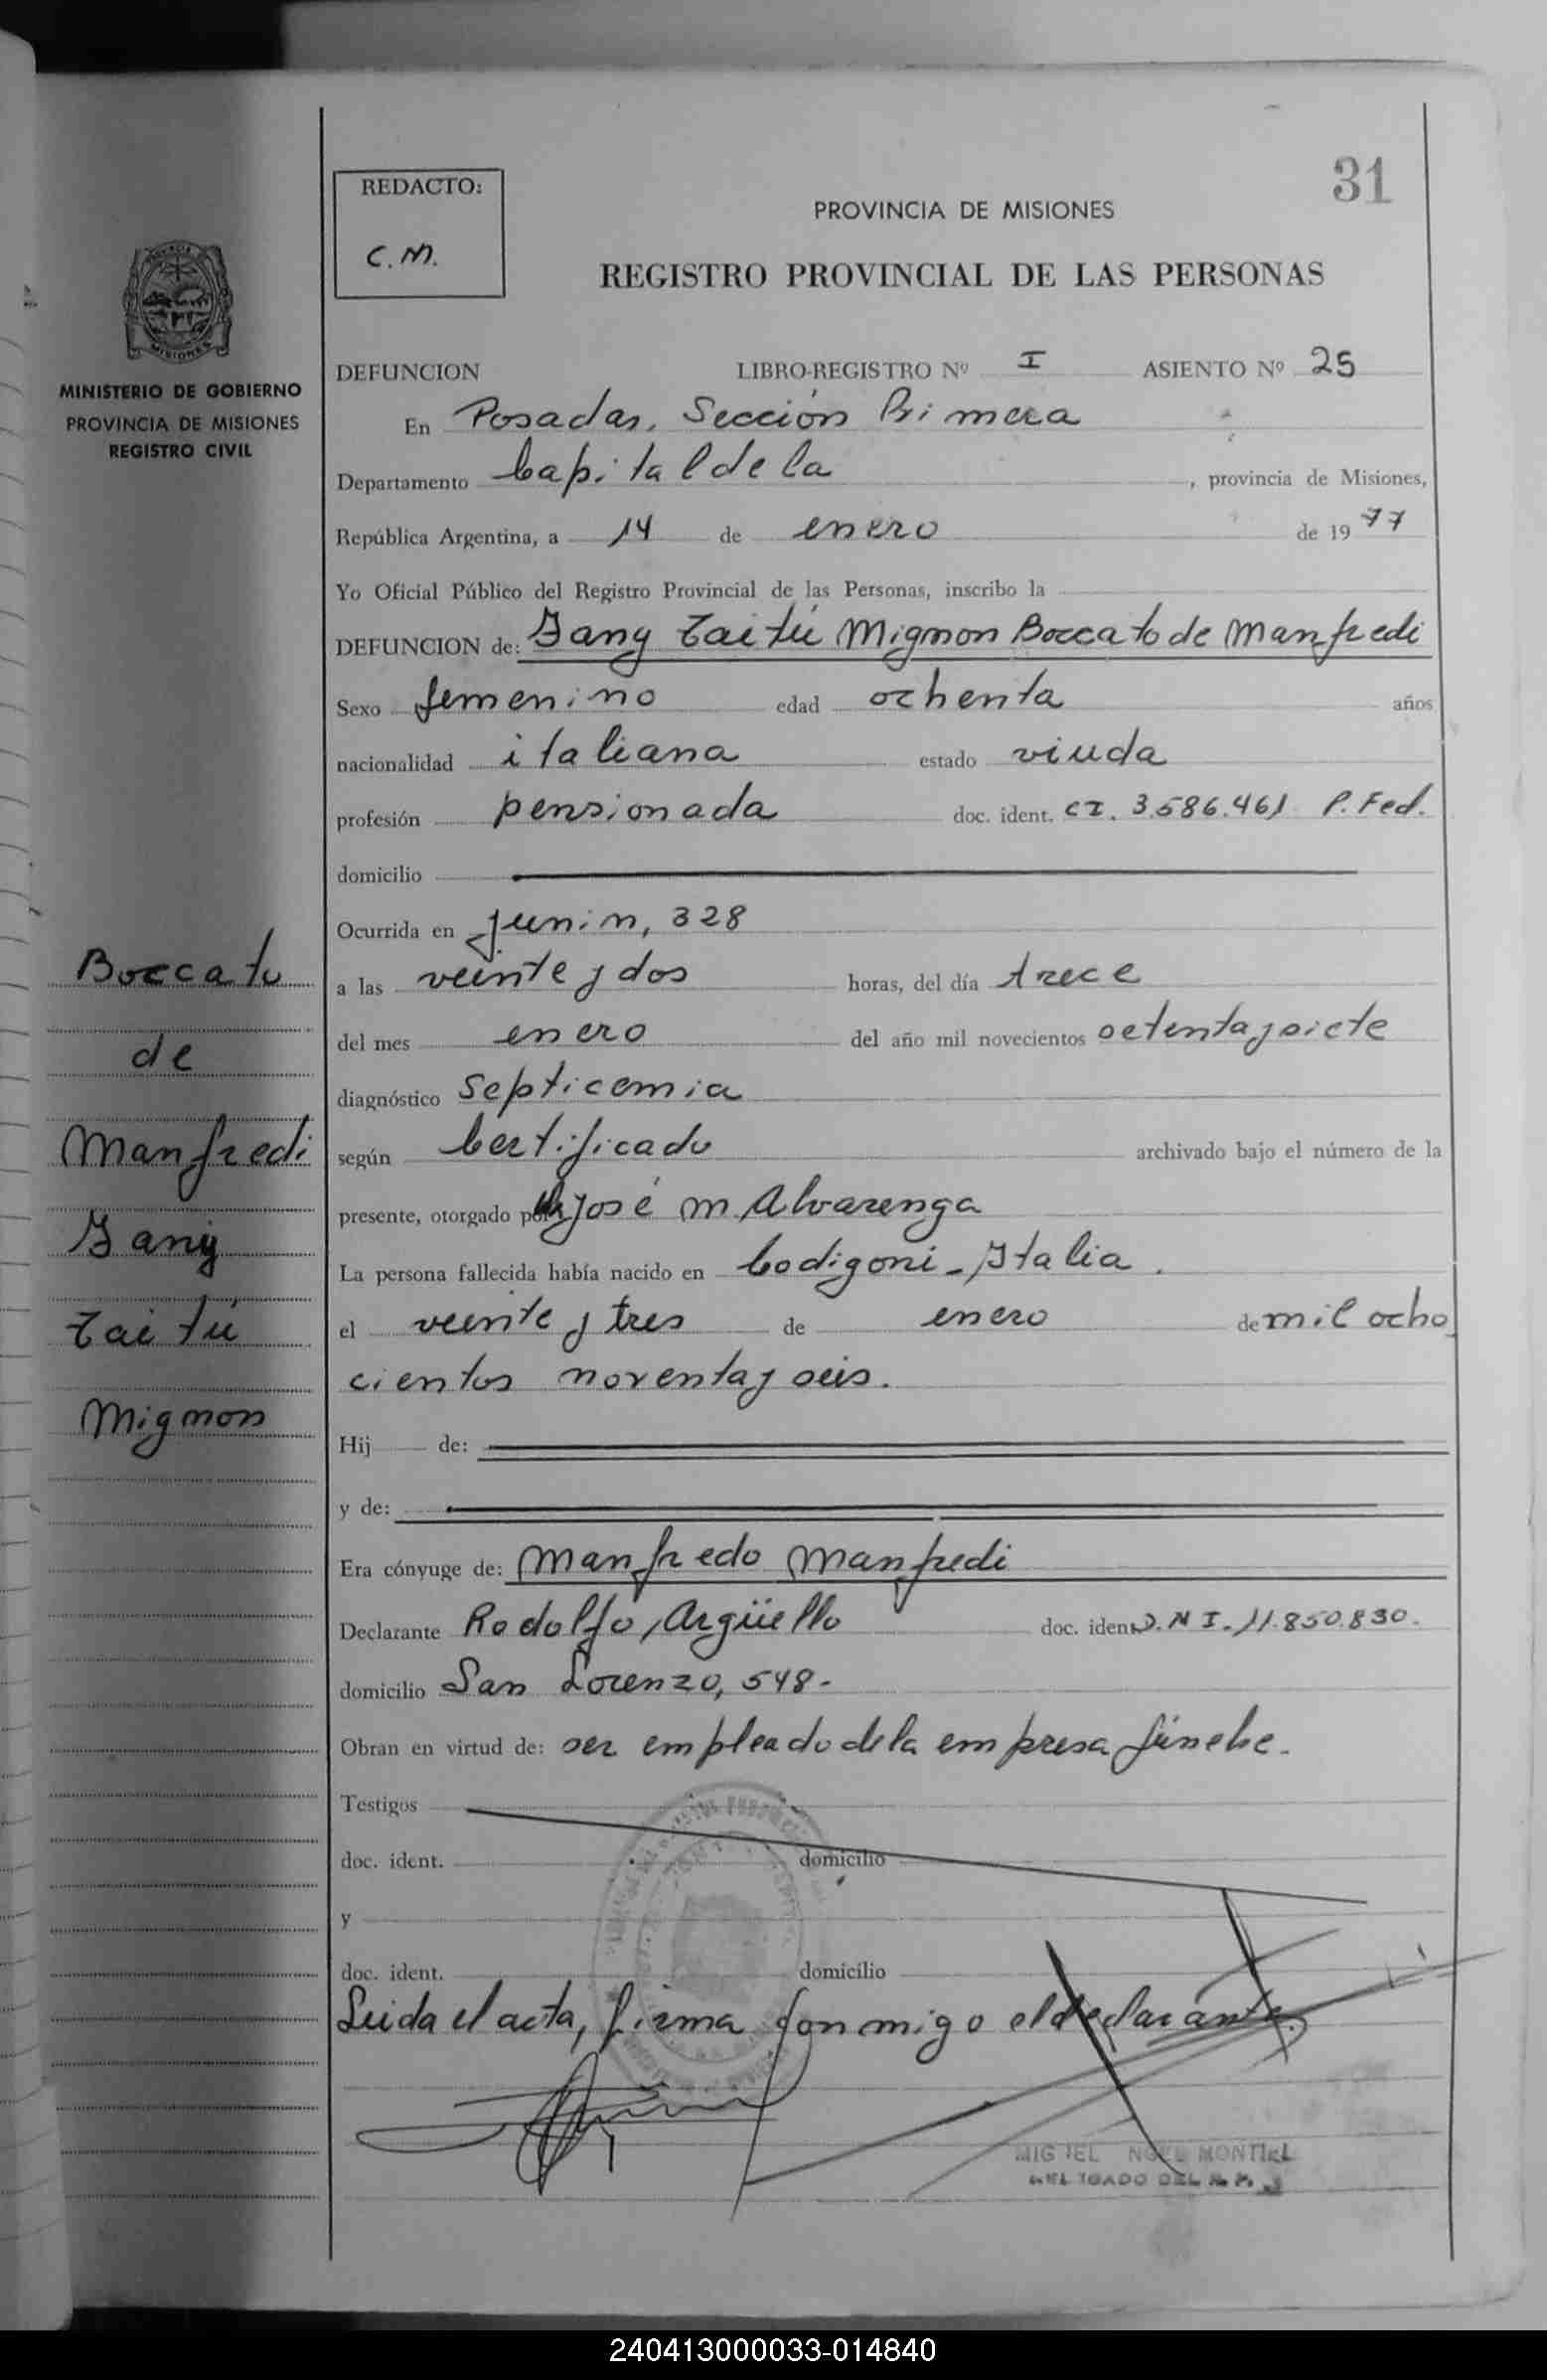 31
REDACTO:
C.M.
PROVINCIA DE MISIONES
REGISTRO PROVINCIAL DE LAS PERSONAS
MINISTERIO DE GOBIERNO
PROVINCIA DE MISIONES
REGISTRO CIVIL
DEFUNCION LIBRO-REGISTRO Nº I ASIENTO Nº 25
En Posadas, Sección Primera
Departamento Capital de la, provincia de Misiones,
República Argentina, a 14 de enero de 1977
Yo Oficial Público del Registro Provincial de las Personas, inscribo la
DEFUNCION de: Jany Taitú Mignon Boccato de Manfredi
Sexo femenino edad ochenta años
nacionalidad italiana estado viuda
profesión pensionada doc. ident. CI. 3.586.461 P. Fed.
domicilio
Ocurrida en Junin, 328
a las veinte y dos horas, del día trece
del mes enero del año mil novecientos setenta y siete
diagnóstico Septicemia
según Certificado archivado bajo el número de la
presente, otorgado por José M Alvarenga
La persona fallecida había nacido en Codigoni - Italia.
el veinte y tres de enero de mil ocho
cientos noventa y seis.
Hij de:
y de:
Era cónyuge de: Manfredo Manfredi
Declarante Rodolfo Argüello doc. ident D.N I. 11.850.830.
domicilio San Lorenzo, 548-
Obran en virtud de: ser empleado de la empresa fúnebe.
Testigos
doc. ident. domicilio
y
doc. ident. domicilio
Leida el acta, firma conmigo el declarante.
MIGUEL NOEL MONTIEL
DELEGADO DEL R. P.
Boccato
de
Manfredi
Jany
Taitú
Mignon
240413000033-014840